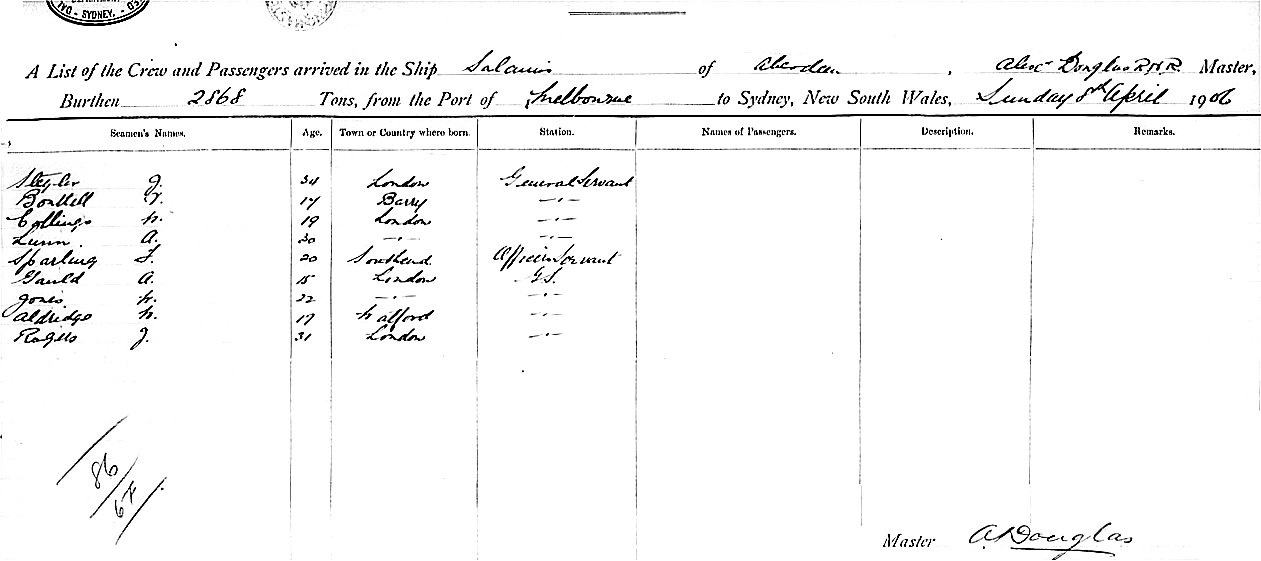 SYDNEY.
A List of the Crew and Passengers arrived in the Ship Salamis of Aberdeen, Alexr Douglas R.N.R. Master,
Burthen 2868 Tons, from the Port of Melbourne to Sydney, New South Wales, Sunday 8th April 1906
Seamen's Names. Age. Town or Country where born. Station. Names of Passengers. Description. Remarks.
J. 34 London General Servant
17 Barry -"-
Collings H. 19 London -"-
Lunn. A. 20 -"- -"-
Sparling F. 20 Southend Officers Servant
Gauld A. 15 London G.S.
Jones H. 22 -"- -"-
Aldridge H. 17 -"-
Rogers J. 31 London -"-
86
67
Master A. Douglas